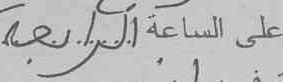 على الساعة الرابعة